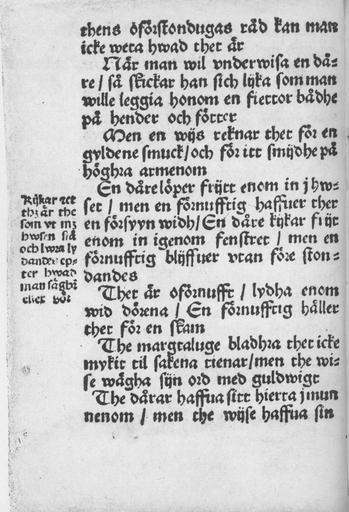 thens oförstondugas råd kan man
icke weta hwad thet är
När man wil vnderwisa en då-
re / så skickar han sich lijka som man
wille leggia honom en fiettor bådhe
på hender och fötter
Men en wijs reknar thet för en
gyldene smuck / och för itt smijdhe på
höghra armenom
En dåre löper frijtt enom in j hw-
set / men en förnufftig haffuer ther
en försyyn widh / En dåre kijkar frijt
enom in igenom fenstret / men en
förnufftig bliffuer vtan före ston-
dandes
Thet är oförnufft / lydha enom
wid dörena / En förnufftig håller
thet för en skam
The margtaluge bladhra thet icke
mykit til sakena tienar / men the wi-
se wägha sijn ord med guldwigt
The dårar haffua sitt hierta j mun
nenom / men the wijse haffua sin
Kijkar etc
thz är the
som vt
hwsen
och lwra ly
dandes ep-
ter hwad
man säghi
eller gör